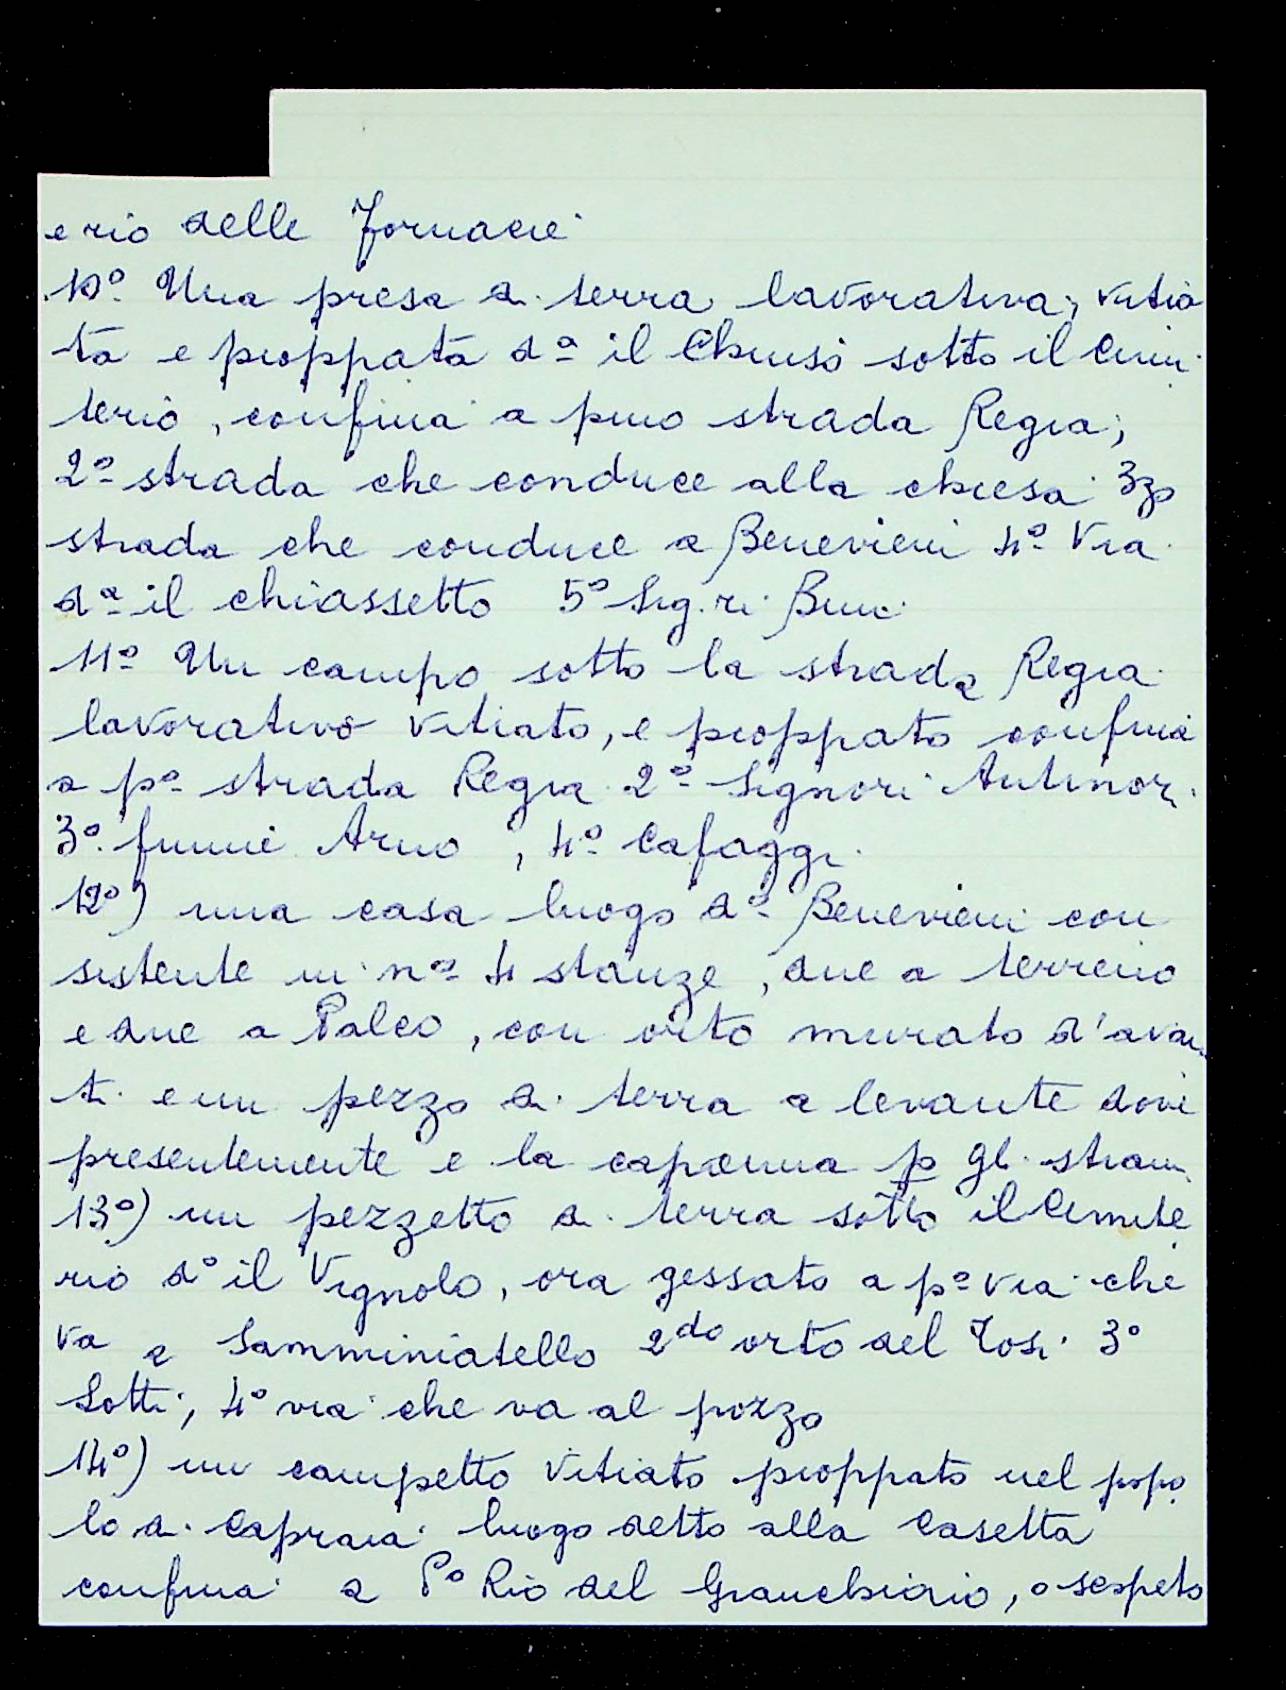 e rio delle Fornacie
10º. Una presa di terra lavorativa, vitia
ta e pioppata dª il Chiuso sotto il Cimi
terio, confina a pmo strada Regia;
2º strada che conduce alla chiesa 3zo
strada che conduce a Benevieni 4º Via
dª il chiassetto 5º Sig.ri
11º Un campo sotto la strada Regia
lavorativo vitiato, e pioppato confina
a pº strada Regia 2º Signori Antinori
3º. fiume Arno, 4º Cafaggi.
12º) una casa luogo dº Benevieni con
sistente in nº 4 stanze, due a terreno
e due a Palco, con orto murato d'avan
ti e un pezzo di terra a levante dove
presentemente e la capanna p gli strami
13º) un pezzetto di terra sotto il Cimite
rio dº il Vignolo, ora gessato a pº via che
va a Samminiatello 2do orto del Tosi 3º
Sotti, 4º via che va al pozzo
14º) un campetto vitiato pioppato nel popo
lo di Capraia luogo detto alla Casetta
confina a Pº Rio del Granchiaio, o